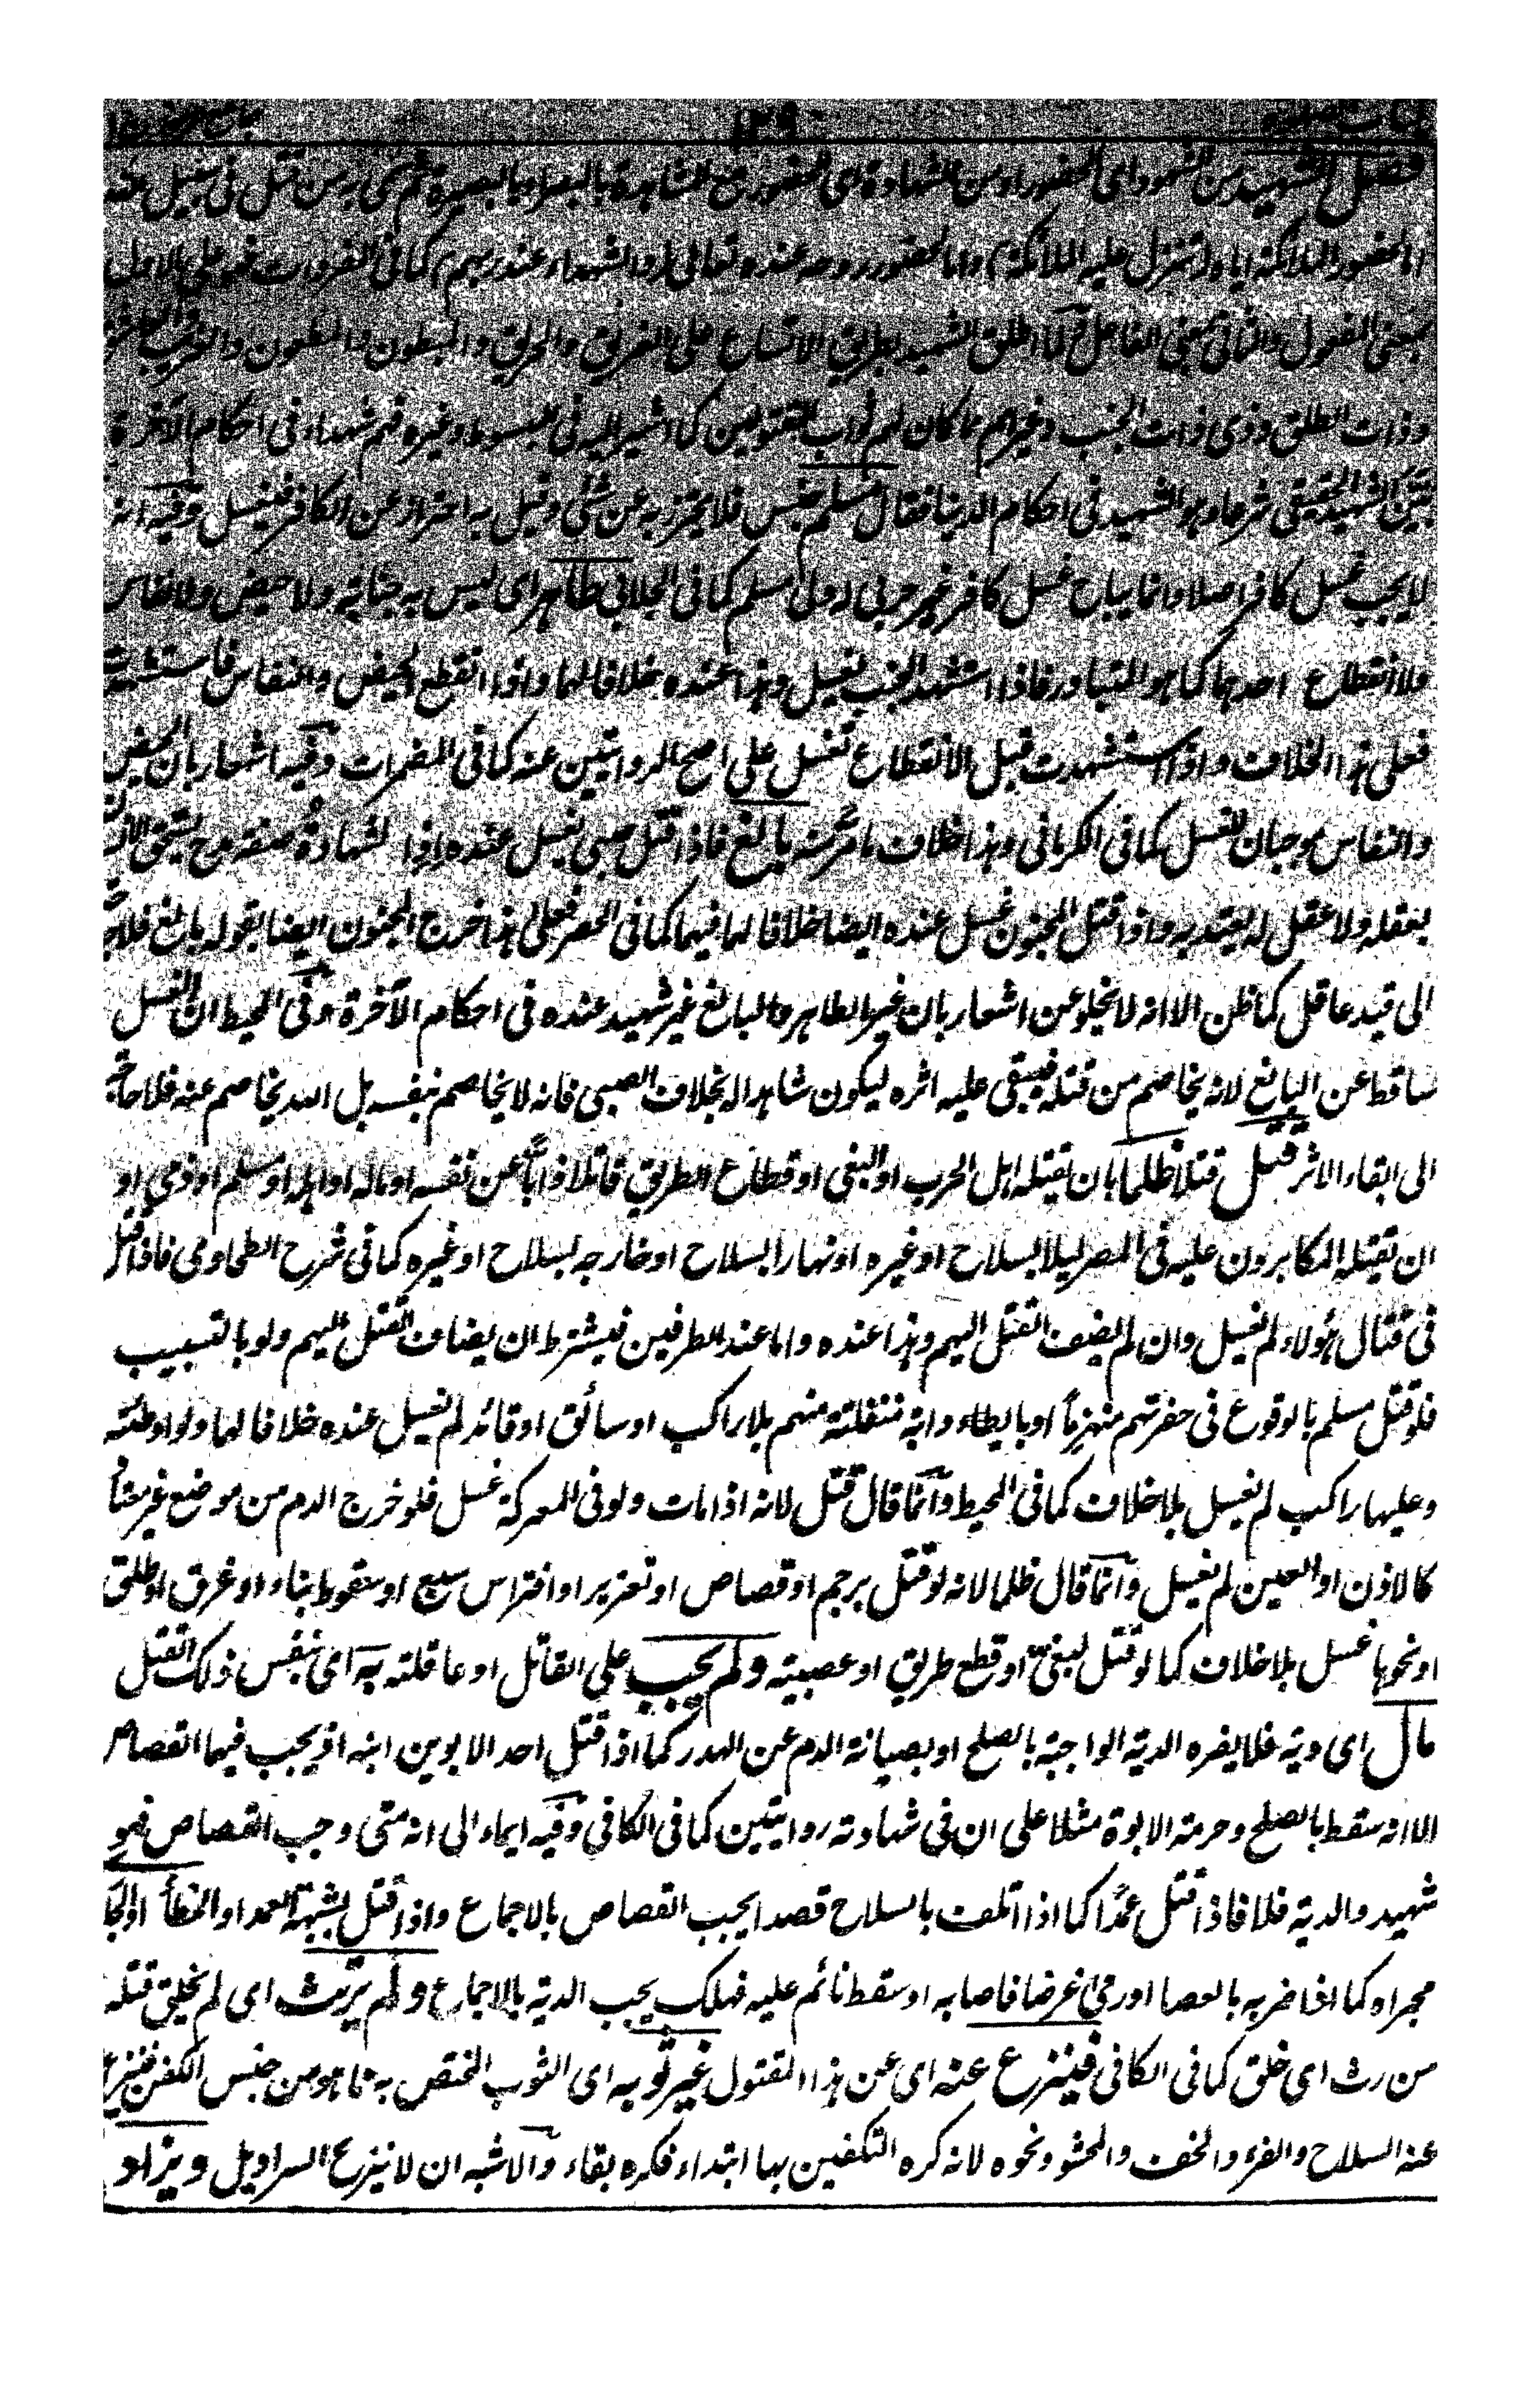 كتاب الصلوة ١٢٩ جامع الرموز
فصل الشهيد من الشهود اى الحضور او من الشهادة اى الحضور مع المشاهدة بالبصر او بالبصيرة ثم سمى به من قتل فى سبيل الله
اما لحضور الملائكة اياه اذ تتنزل عليه الملائكة واما لحضور روحه عنده تعالى والشهداء عند ربهم كما فى المفردات فهو على الاول
بمعنى المفعول والثانى بمعنى الفاعل لما اطلق الشهيد بطريق الاتساع على الغريق والحريق والمبطون والمطعون والغريب
وذات الطلق وذى ذات الجنب وغيرهم مما كان لهم ثواب المقتولين كما اشير اليه فى المبسوط وغيره فهم شهداء فى احكام الآخرة
بين الشهيد الحقيقى شرعا وهو الشهيد فى احكام الدنيا فقال مسلم جنس فلا يحترز به عن شئ وقيل به احتراز عن الكافر فيغسل وفيه انه
لا يجب غسل كافر اصلا وانما يباح غسل كافر غير حربى له ولى مسلم كما فى الجلابى طاهر اى ليس به جنابة ولا حيض ولا نفاس
ولا انقطاع احدهما كما هو المتبادر فاذا استشهد الجنب يغسل وهذا عنده خلافا لهما واذا انقطع الحيض والنفاس فاستشهدت
فعلى هذا الخلاف واذا استشهدت قبل الانقطاع تغسل على اصح الروايتين عنه كما فى المضمرات وفيه اشعار بان الحيض
والنفاس موجبان للغسل كما فى الكرمانى وهذا خلاف ما مر منه بالغ فاذا قتل صبى يغسل عنده اذ الشهادة صفة مدح يستحق الانسان
بعقله ولا عقل له يعتد به واذا قتل المجنون غسل عنده ايضا خلافا لهما فيهما كما فى الحصر فعلى هذا خرج المجنون ايضا بقوله بالغ فلا حاجة
الى قيد عاقل كما ظن الا انه لا يخلو عن اشعار بان غير الطاهر والبالغ غير شهيد عنده فى احكام الآخرة وفى المحيط ان الغسل
ساقط عن البالغ لانه يخاصم من قتله فيبقى عليه اثره ليكون شاهدا له بخلاف الصبى فانه لا يخاصم بنفسه بل الله يخاصم عنه فلا حاجة
الى ابقاء الاثر قتل قتلا ظلما بان يقتله اهل الحرب او البغى او قطاع الطريق قاتلا ذابا عن نفسه او ماله او اهله او مسلم او ذمى او
ان يقتله المكابرون عليه فى المصر ليلا بسلاح او غيره او نهارا بسلاح او خارجه بسلاح او غيره كما فى شرح الطحاوى فاذا قتل
فى قتال هؤلاء لم يغسل وان لم يضف القتل اليهم وهذا عنده واما عند الطرفين فيشترط ان يضاف القتل اليهم ولو بالتسبيب
فلو قتل مسلم بالوقوع فى حفرتهم منهزما او بايطاء دابة منفلتة منهم بلا راكب او سائق او قائد لم يغسل عنده خلافا لهما ولو اوطئته
وعليها راكب لم يغسل بلا خلاف كما فى المحيط وانما قال قتل لانه اذا مات ولو فى المعركة غسل فلو خرج الدم من موضع غير معتاد
كالاذن او العين لم يغسل وانما قال ظلما لانه لو قتل برجم او قصاص او تعزير او افتراس سبع او سقوط بناء او غرق او طلق
او نحوها غسل بلا خلاف كما لو قتل لبغى او قطع طريق او عصبية ولم يجب على القاتل او عاقلته به اى بنفس ذلك القتل
مال اى دية فلا يضره الدية الواجبة بالصلح او بصيانة الدم عن الهدر كما اذا قتل احد الابوين ابنه اذ يجب فيهما القصاص
الا انه سقط بالصلح وحرمة الابوة مثلا على ان فى شهادته روايتين كما فى الكافى وفيه ايماء الى انه متى وجب القصاص فهو
شهيد والدية فلا فاذا قتل عمدا كما اذا تلف بالسلاح قصدا يجب القصاص بالاجماع واذا قتل بشبهة العمد او الخطأ او الجارى
مجراه كما اذا ضربه بالعصا او رمى غرضا فاصابه او سقط نائم عليه فهلك يجب الدية بالاجماع ولم يرتث اى لم يخلق قتله
من رث اى خلق كما فى الكافى فينزع عنه اى عن هذا المقتول غير ثوبه اى الثوب المختص به مما هو من جنس الكفن فينزع
عنه السلاح والفرو والخف والحشو ونحوه لانه كره التكفين بها ابتداء فكره بقاء والاشبه ان لا ينزع السراويل ويزاد